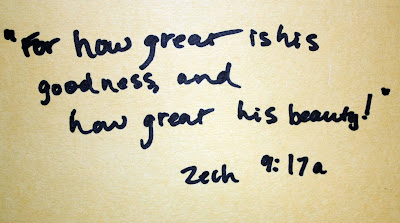 "For how great is his
goodness, and
how great his beauty!"
Zech 9:17a